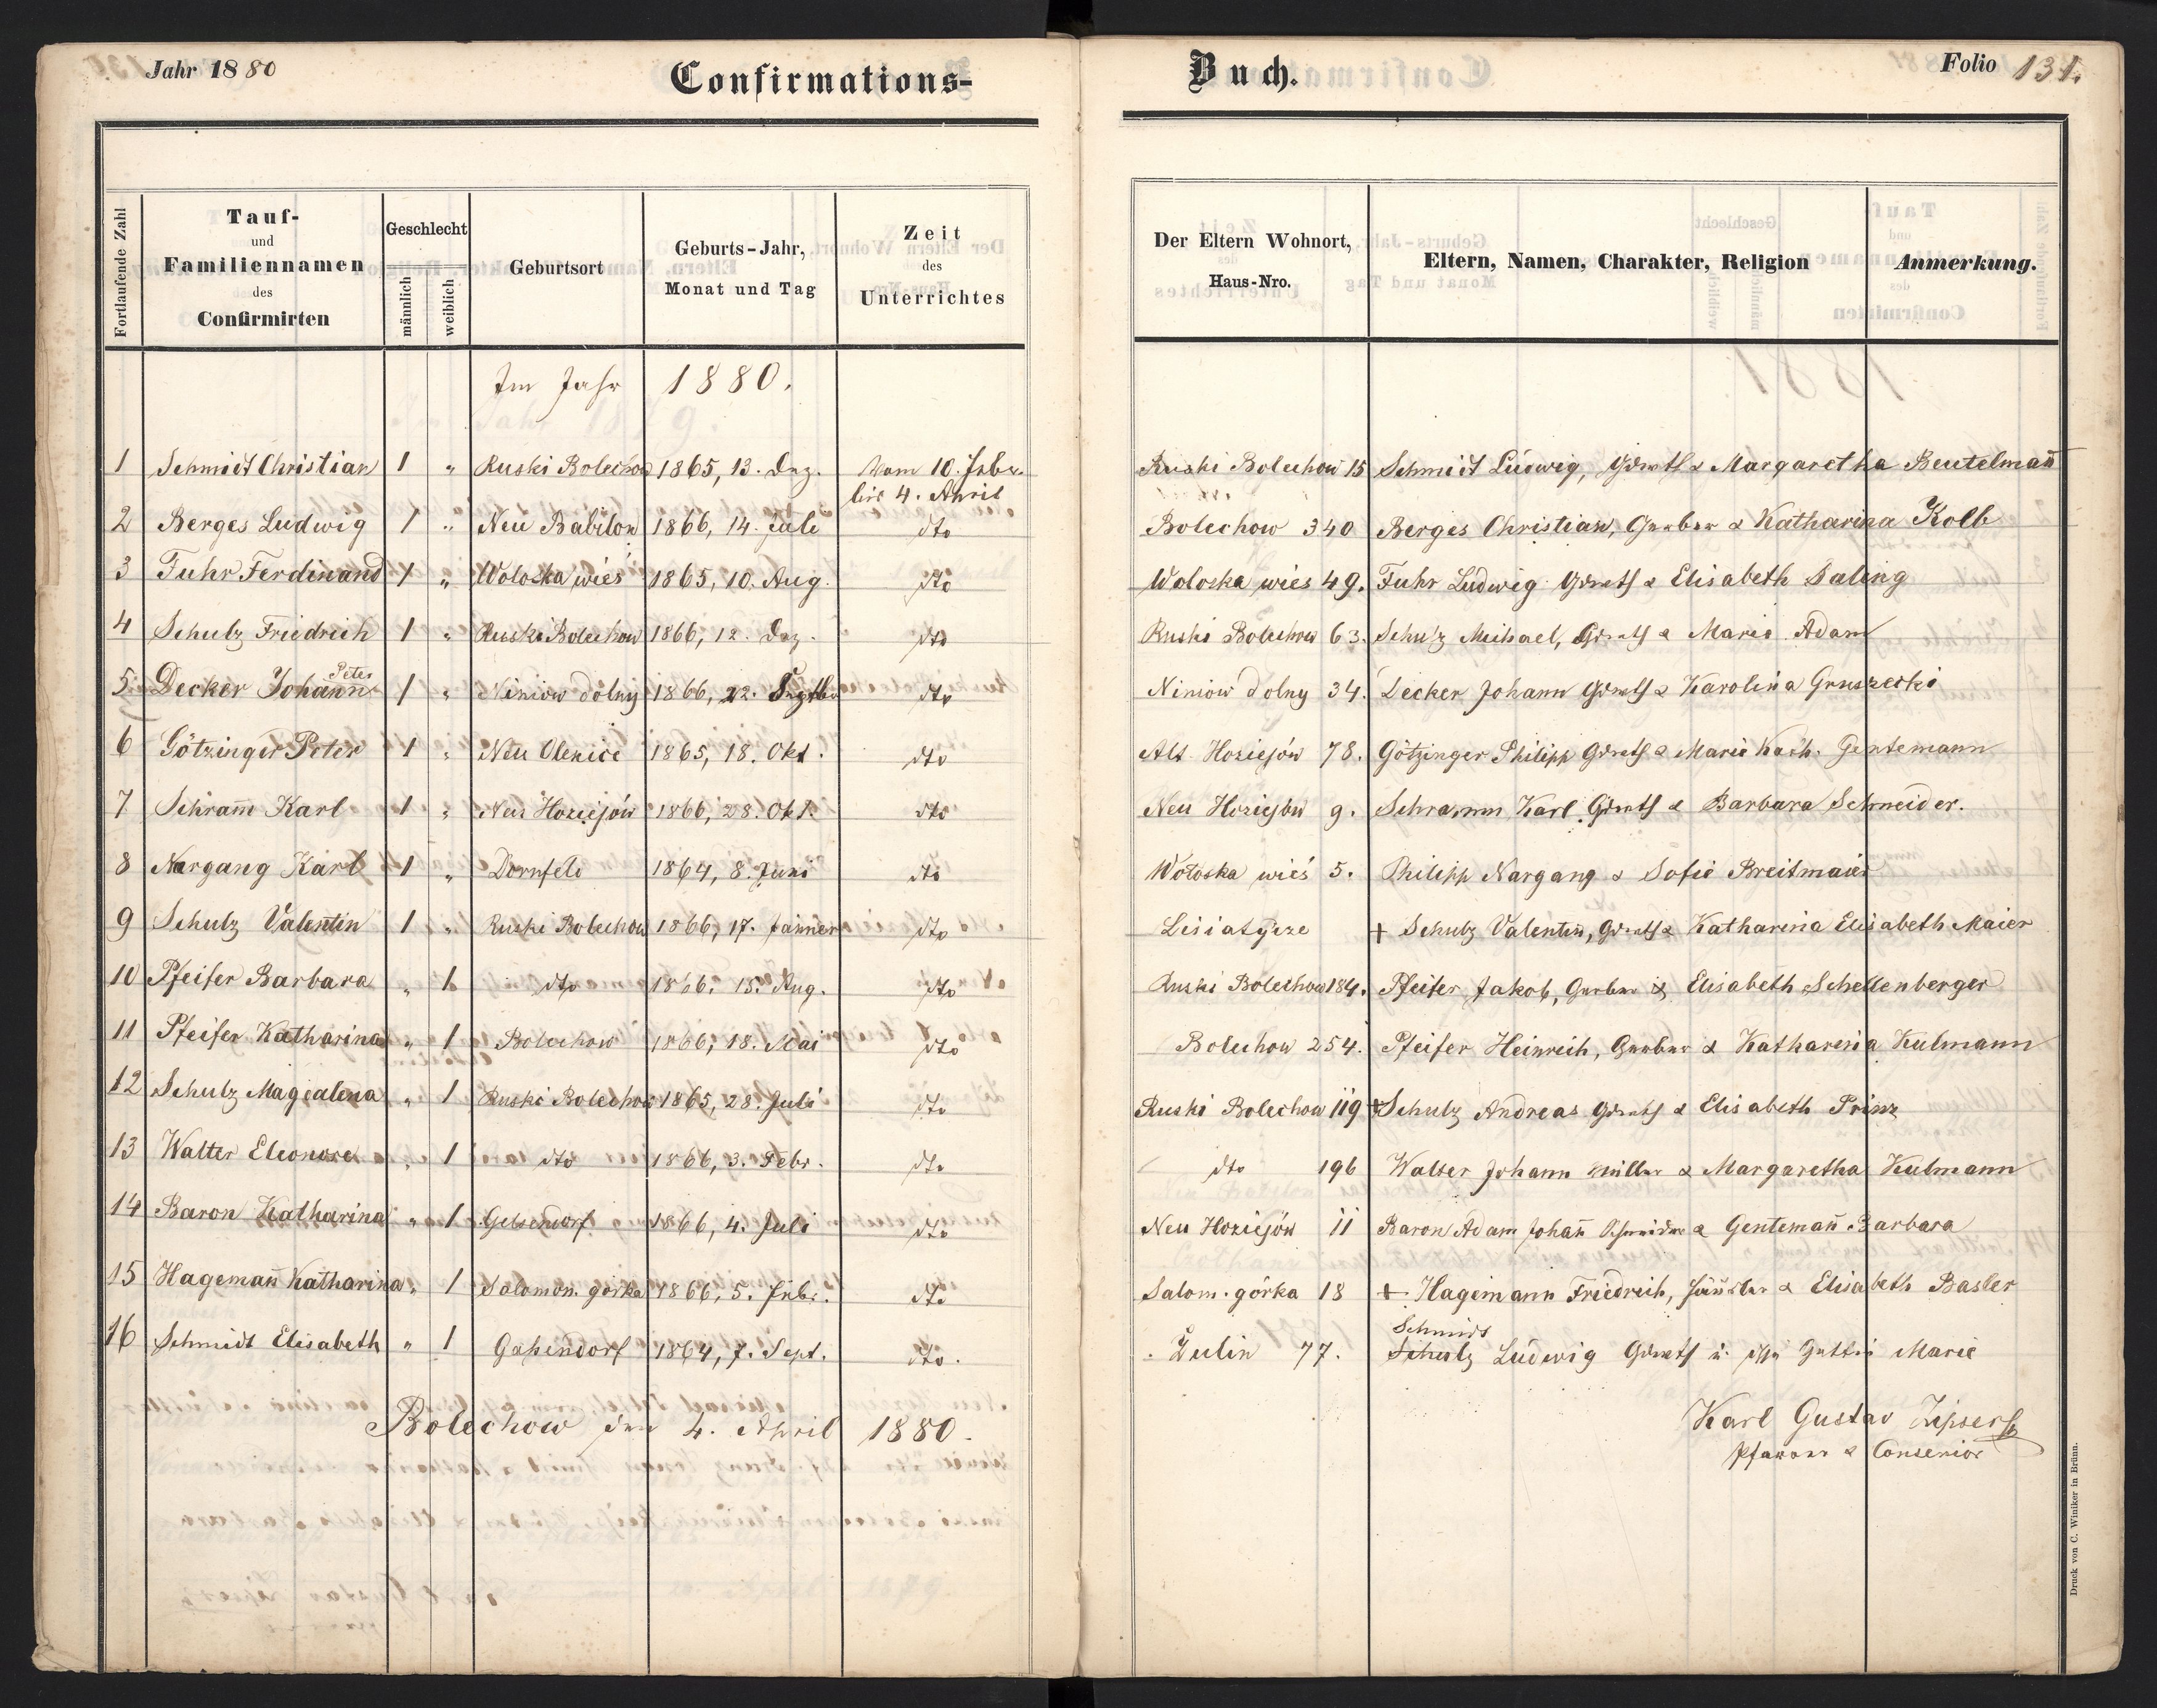 Jahr 1880 Confirmations-
Buch. Folio 131.
Fortlaufende Zahl
Tauf-
und
Familiennamen
des
Confirmirten
Geschlecht
männlich
weiblich
Geburtsort
Geburts-Jahr,
Monat und Tag
Zeit
des
Unterrichtes
Der Eltern Wohnort,
Haus-Nro.
Eltern, Namen, Charakter, Religion
Anmerkung.
Im Jahr 1880.
1 Schmidt Christian 1 " Ruski Bolechow 1865, 13. Dez. Vom 10. Febr. bis 4. April Ruski Bolechow 15 Schmidt Ludwig, Grundw & Margaretha Beutelman̄
2 Berges Ludwig 1 " Neu Babilon 1866, 14. Juli dto Bolechow 340 Berges Christian, Gerber & Katharina Kolb
3 Fuhr Ferdinand 1 " Woloska wieś 1865, 10. Aug. dto Woloska wies 49. Fuhr Ludwig Grundw & Elisabeth Saling
4 Schulz Friedrich 1 " Ruski Bolechow 1866, 12. Dez. dto Ruski Bolechow 63. Schulz Michael, Grundw & Marie Adam
5 Decker Johann Peter 1 " Niniow dolny 1866, 22. Septbr dto Niniow dolny 34. Decker Johann Grundw & Karolina Gruszecki
6 Götzinger Peter 1 " Neu Olexice 1865, 18. Okt. dto Alt Hoziejów 78. Götzinger Philipp Grundw & Marie Kath. Gentemann
7 Schram̄ Karl 1 " Neu Hoziejów 1866, 28. Okt. dto Neu Hoziejów 9. Schramm Karl Grundw & Barbara Schneider.
8 Nargang Karl 1 " Dornfeld 1864, 8. Juni dto Wołoska wieś 5. Philipp Nargang & Sofie Breitmaier
9 Schulz Valentin 1 " Ruski Bolechow 1866, 17. Jänner dto Lisiatycze + Schulz Valentin, Grundw & Katharina Elisabeth Maier
10 Pfeifer Barbara " 1 dto 1866, 15. Aug. dto Ruski Bolechow 184. Pfeifer Jakob, Gerber & Elisabeth Schellenberger
11 Pfeifer Katharina " 1 Bolechow 1866, 18. Mai dto Bolechow 254. Pfeifer Heinrich, Gerber & Katharina Kulmann
12 Schulz Magdalena " 1 Ruski Bolechow 1865, 28. Juli dto Ruski Bolechow 119 + Schulz Andreas Grundw & Elisabeth Prinz
13 Walter Eleonore " 1 dto 1866, 3. Febr. dto dto 196 Walter Johann Müller & Margaretha Kulmann
14 Baron Katharina " 1 Gelsendorf 1866, 4. Juli dto Neu Hoziejów 11 Baron Adam Johan̄ Schneider & Genteman̄ Barbara
15 Hageman̄ Katharina " 1 Salomon. górka 1866, 5. Febr. dto Salom. górka 18 + Hagemann Friedrich, Häusler & Elisabeth Basler
16 Schmidt Elisabeth " 1 Gassendorf 1864, 7. Sept. dto. Zulin 77. Schulz Schmidt Ludwig Grundw u. dessen Gattin Marie
Bolechow den 4. April 1880.
Karl Gustav Zipser
Pfarrer & Consenior
Druck von C. Winiker in Brünn.